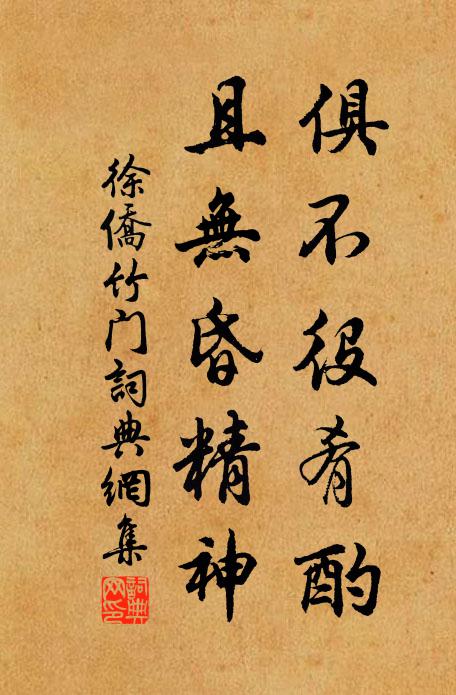 俱不役肴酌
且無昏精神
徐僑竹门詞典網集
詞典
网印